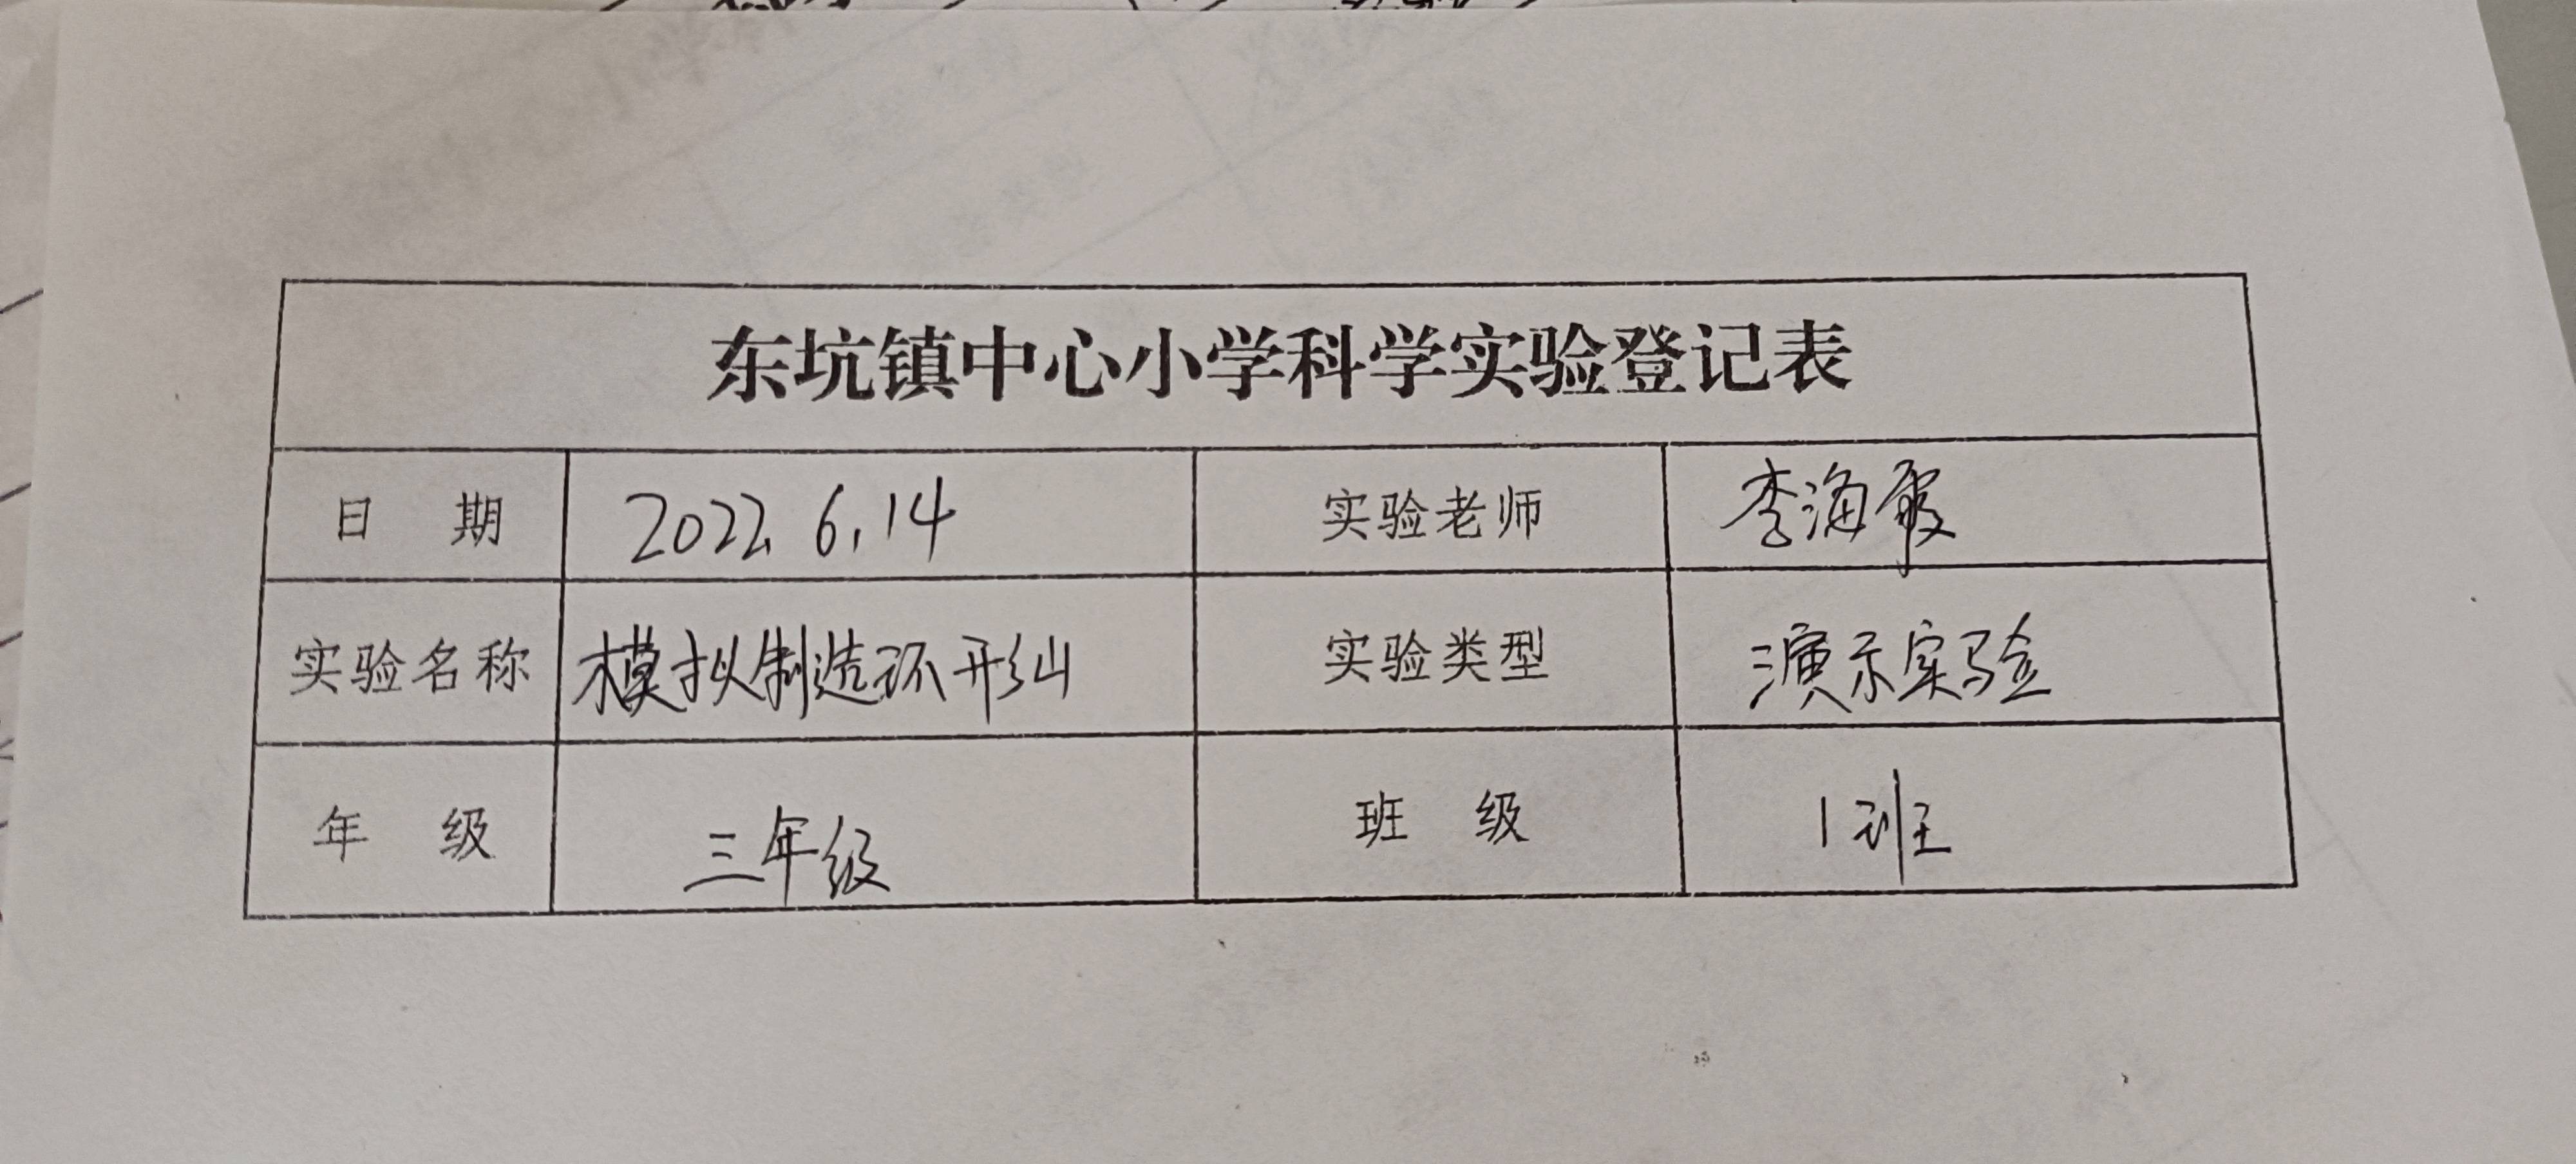 东坑镇中心小学科学实验登记表
日 期 2022.6.14 实验老师 李海霞
实验名称 模拟制造环形山 实验类型 演示实验
年 级 三年级 班 级 1班